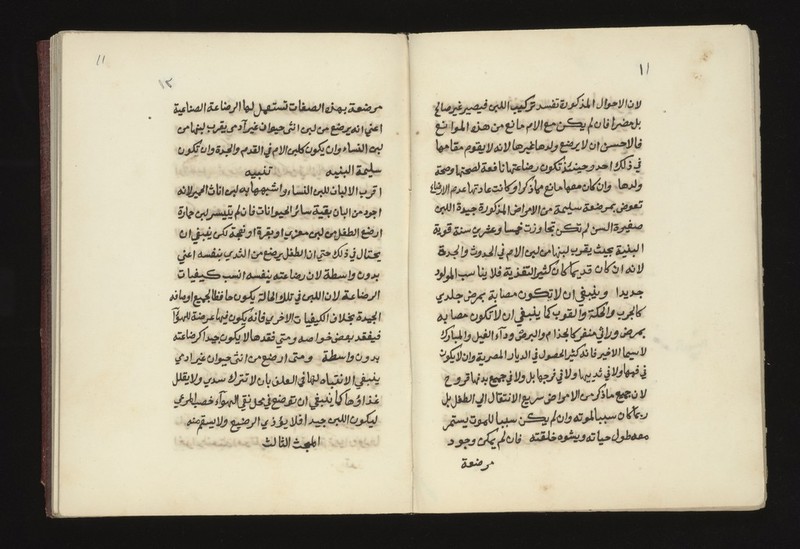 ١١
لان الاحوال المذكورة تفسد تركيب اللبن فيصير غير صالح
بل مضرا فان لم يكن مع الام مانع من هذه الموانع
فالاحسن ان لا يرضع ولدها غيرها لانه لا يقوم مقامها
في ذلك احد وحينئذ تكون رضاعتها نافعة لصحتها وصحة
ولدها وان كان معها مانع مما ذكر او كانت عادتها عدم الارضاع
تعوض بمرضعة سليمة من الامراض المذكورة جيدة اللبن
صغيرة السن لم تكن تجاوزت خمسا وعشرين سنة قوية
البنية بحيث يقرب لبنها من لبن الام في الحدوث والجدة
لانه ان كان قديما كان كثير التغذية فلا يناسب المولود
جديدا وينبغي ان لا تكون مصابة بمرض جلدي
كالجرب والحكة والقوب كما ينبغي ان لا تكون مصابه
بمرض وراثي منفر كالجذام والبرص وداء الفيل والمبارك
لا سيما الاخير فانه كثير الحصول في الديار المصرية وان لا يكون
في فيها ولا في ثدييها ولا في فرجها بل ولا في جميع بدنها قروح
لان جميع ما ذكر من الامراض سريع الانتقال الي الطفل بل
ربما كان سببا لموته وان لم يكن سببا للموت يستمر
معه طول حياته ويشوه خلقته فان لم يمكن وجود
مرضعة
١١
١٢
مرضعة بهذه الصفات تستعمل لها الرضاعة الصناعية
اعني انه يرضع من لبن انثى حيوان غير آدمى يقرب لبنها من
لبن النساء وان يكون كلبن الام في القدم والجدة وان تكون
سليمة البنيه تنبيه
اقرب الالبان للبن النساء واشبهها به لبن اناث الحمير لانه
اجود من البان بقية سائر الحيوانات فان لم يتيسر لبن حمارة
ارضع الطفل من لبن معزى او بقرة او نعجة لكن ينبغي ان
يحتال في ذلك حتى ان الطفل يرضع من الثدي بنفسه اعني
بدون واسطة لان رضاعته بنفسه انسب كيفيات
الرضاعة لان اللبن في تلك الحالة يكون حافظا لجميع اوصافه
الجيدة بخلاف الكيفيات الاخري فانه يكون فيها عرضة للهوآء
فيفقد بعض خواصه ومتى فقدها لا يكون جيدا كرضاعته
بدون واسطة ومتى ارضع من انثى حيوان غير ادمي
ينبغي الانتباه لها في العلف بان لا تترك سدي ولا يقلل
غذاؤها كما ينبغي ان توضع في محل نقي الهوآء خصب المرعي
ليكون اللبن جيدا فلا يؤذي الرضيع ولا يسقم منه
المبحث الثالث